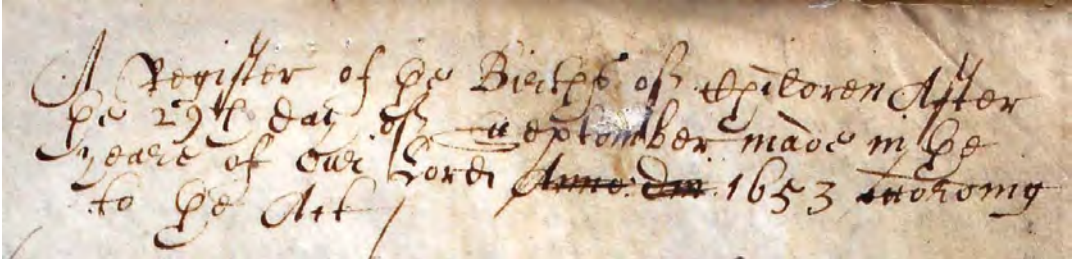 A Register of þe Births of Children After
þe 29th day of September made in þe
yeare of our Lord Anno: Dm: 1653 according
to þe Act